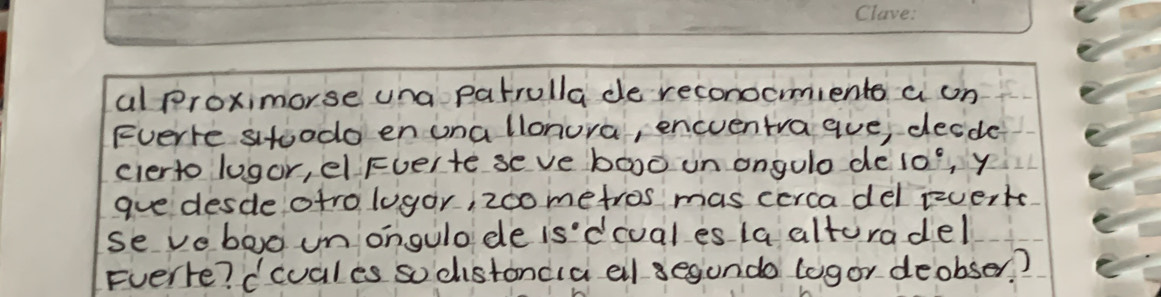 Clave:
al Proximarse una patrulla de reconocimiento a un
Fuerte situado en una llanura, encuentra que, desde
cierto lugar, el Fuerte se ve bajo un angulo de 10°, y
que desde otro lugar, 200 metros mas cerca del Fuerte
se ve bajo un ángulo de 15° ¿cual es la altura del
Fuerte? ¿cual es su distancia al segundo lugar de obser.?